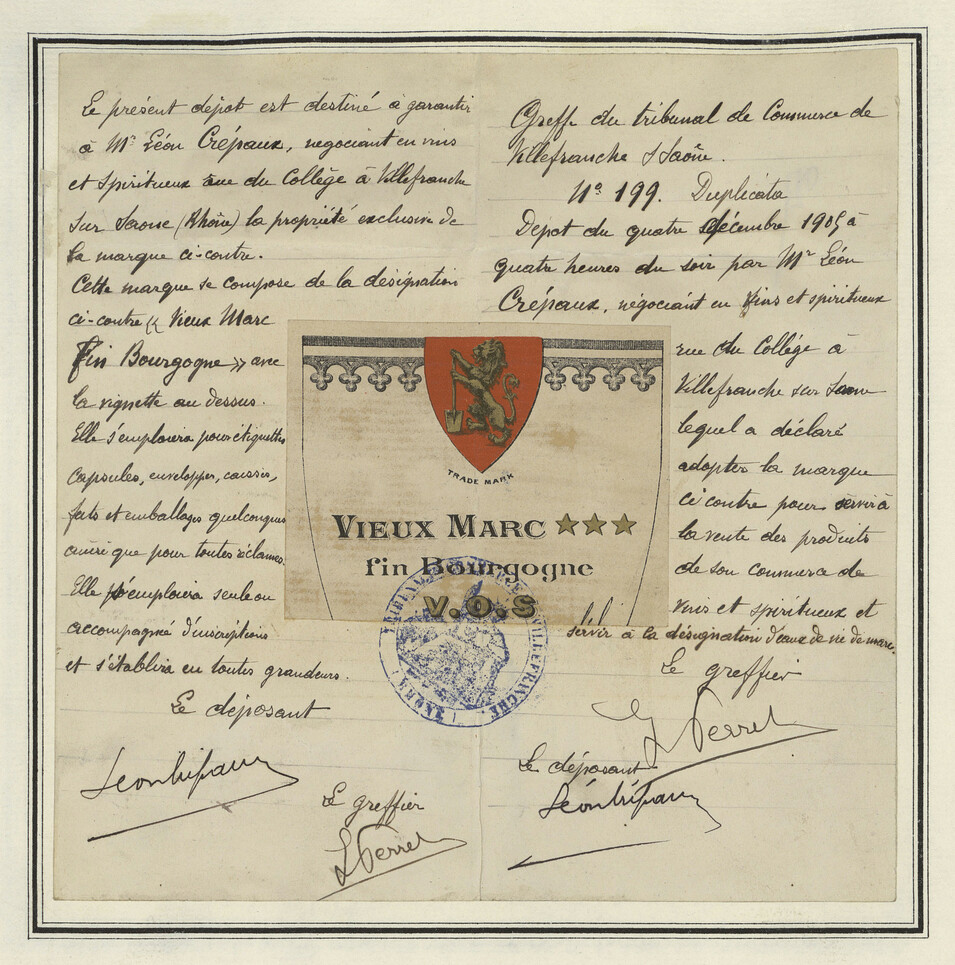 Le présent dépôt est destiné à garantir
à Mr Léon Crépaux, négociant en vins
et spiritueux rue du Collège à Villefranche
sur Saone (Rhône) la propriété exclusive de
la marque ci-contre.
Cette marque se compose de la désignation
ci-contre « Vieux Marc
fin Bourgogne » avec
la vignette au dessus.
Elle s'emploiera pour étiquettes
capsules, enveloppes, caisses,
futs et emballages quelconques
ainsi que pour toutes réclames.
Elle s'emploiera seule ou
accompagnée d'inscriptions
et s'établira en toutes grandeurs.
Le déposant
Léon Crépaux
Le greffier
L Perret
Greffe du tribunal de Commerce de
Villefranche s/Saône.
No 199. Duplicata
Dépot du quatre décembre 1905 à
quatre heures du soir par Mr Léon
Crépaux, négociant en Vins et spiritueux
rue du Collège à
Villefranche sur Saone
lequel a déclaré
adopter la marque
ci contre pour servir à
la vente des produits
de son commerce de
vins et spiritueux et
servir à la désignation d'eaux de vie de marc.
Le greffier
L Perret
Le déposant
Léon Crépaux
TRADE MARK
VIEUX MARC ★★★
fin Bourgogne
V.O.S
TRIBUNAL DE COMMERCE VILLEFRANCHE (RHONE)